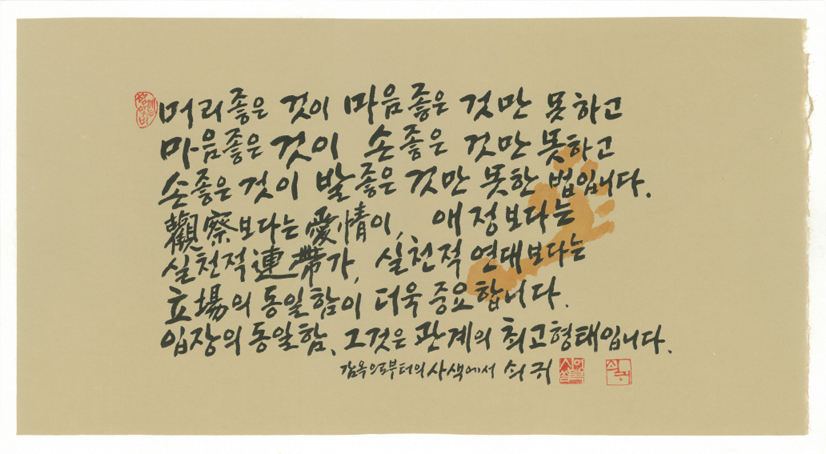 머리좋은 것이 마음좋은 것만 못하고
마음좋은 것이 손좋은 것만 못하고
손좋은 것이 발좋은 것만 못한 법입니다.
觀察보다는 愛情이, 애정보다는
실천적 連帶가, 실천적 연대보다는
立場의 동일함이 더욱 중요합니다.
입장의 동일함, 그것은 관계의 최고형태입니다.
감옥으로부터의 사색에서 쇠귀